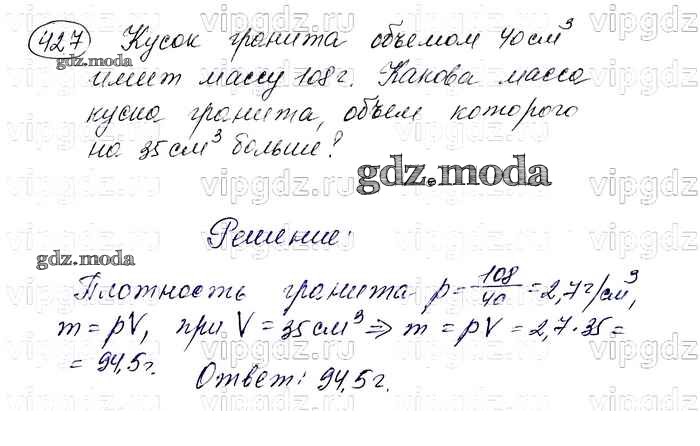 427 Кусок гранита объемом 40 см³
gdz.moda
имеет массу 108 г. Какова масса
куска гранита, объем которого
на 35 см³ больше?
gdz.moda
Решение:
gdz.moda
Плотность гранита p = 108/40 = 2,7 г/см³,
m = pV, при V = 35 см³ => m = pV = 2,7 · 35 =
= 94,5 г.
Ответ: 94,5 г.
vipgdz.ru